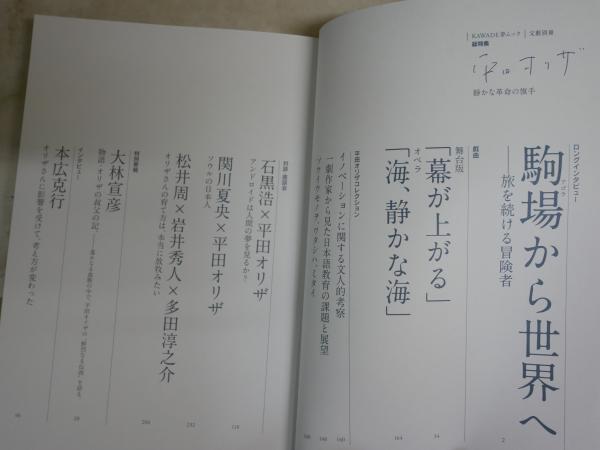 KAWADE夢ムック 文藝別冊
総特集
平田オリザ
静かな革命の旗手
ロングインタビュー
駒場から世界へ
アゴラ
――旅を続ける冒険者
2
戯曲
舞台版
「幕が上がる」
34
オペラ
「海、静かな海」
164
平田オリザコレクション
イノベーションに関する文人的考察
160
一劇作家から見た日本語教育の課題と展望
ソウイウモノヲ、ワタシハ・ミタイ
対談・鼎談
石黒浩×平田オリザ
アンドロイドは人間の夢を見るか?
関川夏央×平田オリザ
ソウルの日本人
松井周×岩井秀人×多田淳之介
オリザさんの育て方は、本当に放牧みたい
特別寄稿
大林宣彦
物語・オリザの叔父の記。
インタビュー
本広克行
オリザさんに影響を受けて、考え方が変わった